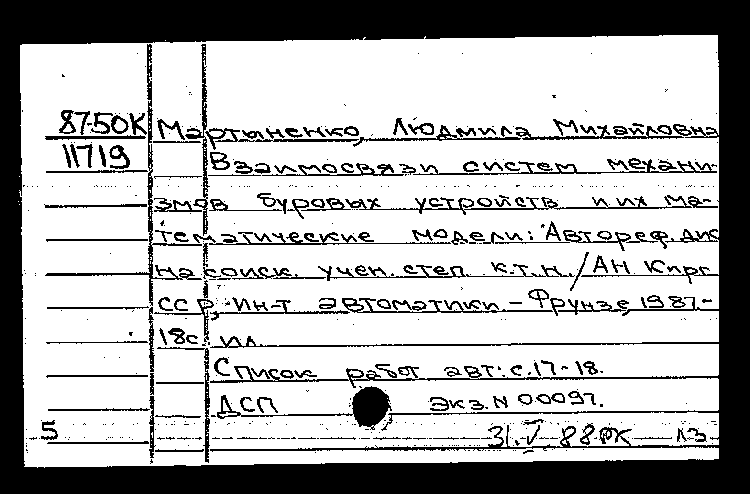 87-50К Мартыненко, Людмила Михайловна
11719 Взаимосвязи систем механи-
змов буровых устройств и их ма-
тематические модели: Автореф. дис
на соиск. учен. степ. к.т.н./АН Кирг
ССР, Ин-т автоматики. – Фрунзе, 1987.–
18с. ил.
Список работ авт: с.17-18.
ДСП Экз. N 00097.
5 31.V 88